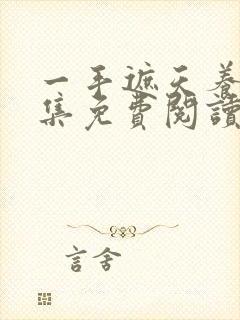 一手遮天養
集免費閱讀
言舍